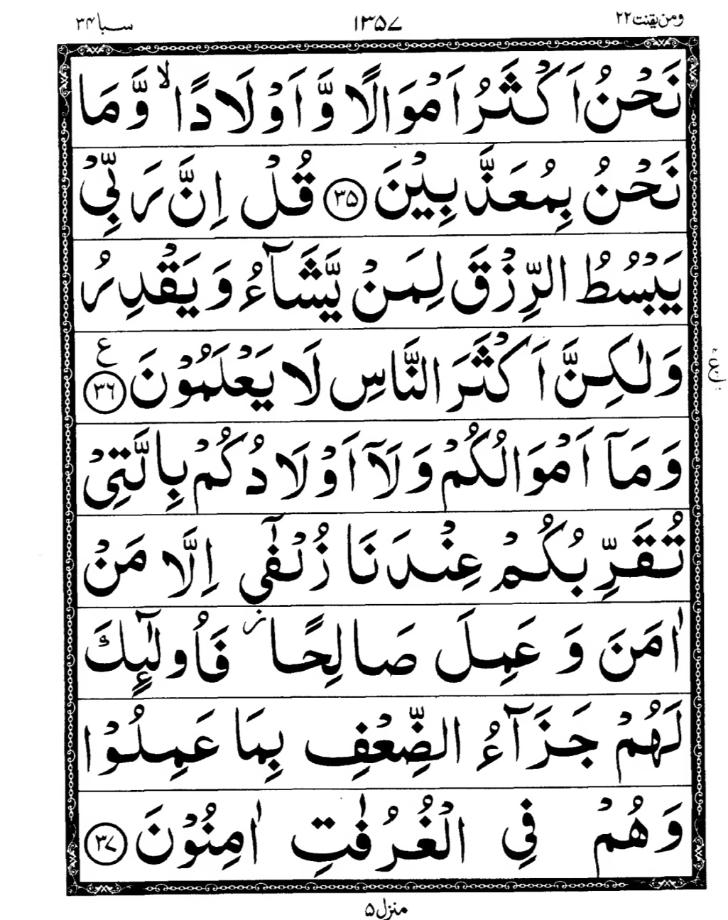 ومن یقنت ۲۲ ۱۳۵۷ سبا ۳۴
نَحْنُ اَكْثَرُ اَمْوَالًا وَّ اَوْلَادًا ۙ وَّ مَا
نَحْنُ بِمُعَذَّبِیْنَ ۳۵ قُلْ اِنَّ رَبِّیْ
یَبْسُطُ الرِّزْقَ لِمَنْ یَّشَآءُ وَ یَقْدِرُ
وَ لٰكِنَّ اَكْثَرَ النَّاسِ لَا یَعْلَمُوْنَ ۳۶ ع
وَ مَاۤ اَمْوَالُكُمْ وَ لَاۤ اَوْلَادُكُمْ بِالَّتِیْ
تُقَرِّبُكُمْ عِنْدَنَا زُلْفٰۤی اِلَّا مَنْ
اٰمَنَ وَ عَمِلَ صَالِحًا ؗ فَاُولٰٓىِٕكَ
لَهُمْ جَزَآءُ الضِّعْفِ بِمَا عَمِلُوْا
وَ هُمْ فِی الْغُرُفٰتِ اٰمِنُوْنَ ۳۷
منزل ۵